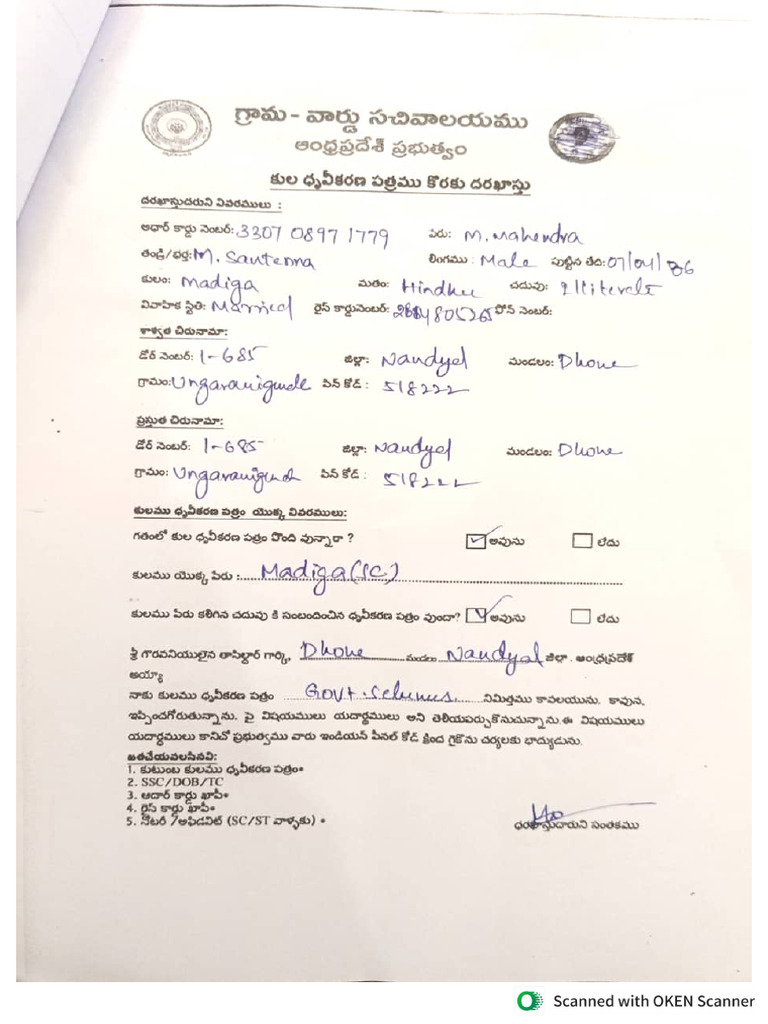 గ్రామ - వార్డు సచివాలయము
ఆంధ్రప్రదేశ్ ప్రభుత్వం
కుల ధృవీకరణ పత్రము కొరకు దరఖాస్తు
దరఖాస్తుదారుని వివరములు :
అధార్ కార్డు నెంబర్: 3307 0897 1779 పేరు: M. Mahendra
తండ్రి/భర్త: M. Santenna లింగము : Male పుట్టిన తేది: 07/04/86
కులం: Madiga మతం: Hindhu చదువు: Illiterate
వివాహిక స్థితి: Married రైస్ కార్డునెంబర్: ఫోన్ నెంబర్:
శాశ్వత చిరునామా:
డోర్ నెంబర్: 1-685 జిల్లా: Nandyal మండలం: Dhone
గ్రామం: Ungaranigundla పిన్ కోడ్ : 518222
ప్రస్తుత చిరునామా:
డోర్ నెంబర్: 1-685 జిల్లా: Nandyal మండలం: Dhone
గ్రామం: Ungaranigund పిన్ కోడ్ : 518222
కులము ధృవీకరణ పత్రం యొక్క వివరములు:
గతంలో కుల ధృవీకరణ పత్రం పొంది వున్నారా ? అవును లేదు
కులము యొక్క పేరు :.... Madiga (SC)
కులము పేరు కలిగిన చదువు కి సంబందించిన ధృవీకరణ పత్రం వుందా? అవును లేదు
శ్రీ గౌరవనియులైన తాసిల్దార్ గార్కి, Dhone మండలం Nandyal జిల్లా . ఆంధ్రప్రదేశ్
అయ్యా
నాకు కులము ధృవీకరణ పత్రం Govt. Schemes నిమిత్తము కావలయును. కావున,
ఇప్పించగోరుతున్నాను. పై విషయములు యదార్థములు అని తెలియపర్చుకొనుచున్నాను.ఈ విషయములు
యదార్థములు కానిచో ప్రభుత్వము వారు ఇండియన్ పీనల్ కోడ్ క్రింద గైకొను చర్యలకు భాద్యుడును.
జతచేయవలసినవి:
1. కుటుంబ కులము ధృవీకరణ పత్రం•
2. SSC/DOB/TC
3. ఆదార్ కార్డు ఖాపీ•
4. రైస్ కార్డు ఖాపీ•
5. నోటరీ /అఫిడవిట్ (SC/ST వాళ్ళకు) •
ధరఖాస్తుదారుని సంతకము
Scanned with OKEN Scanner